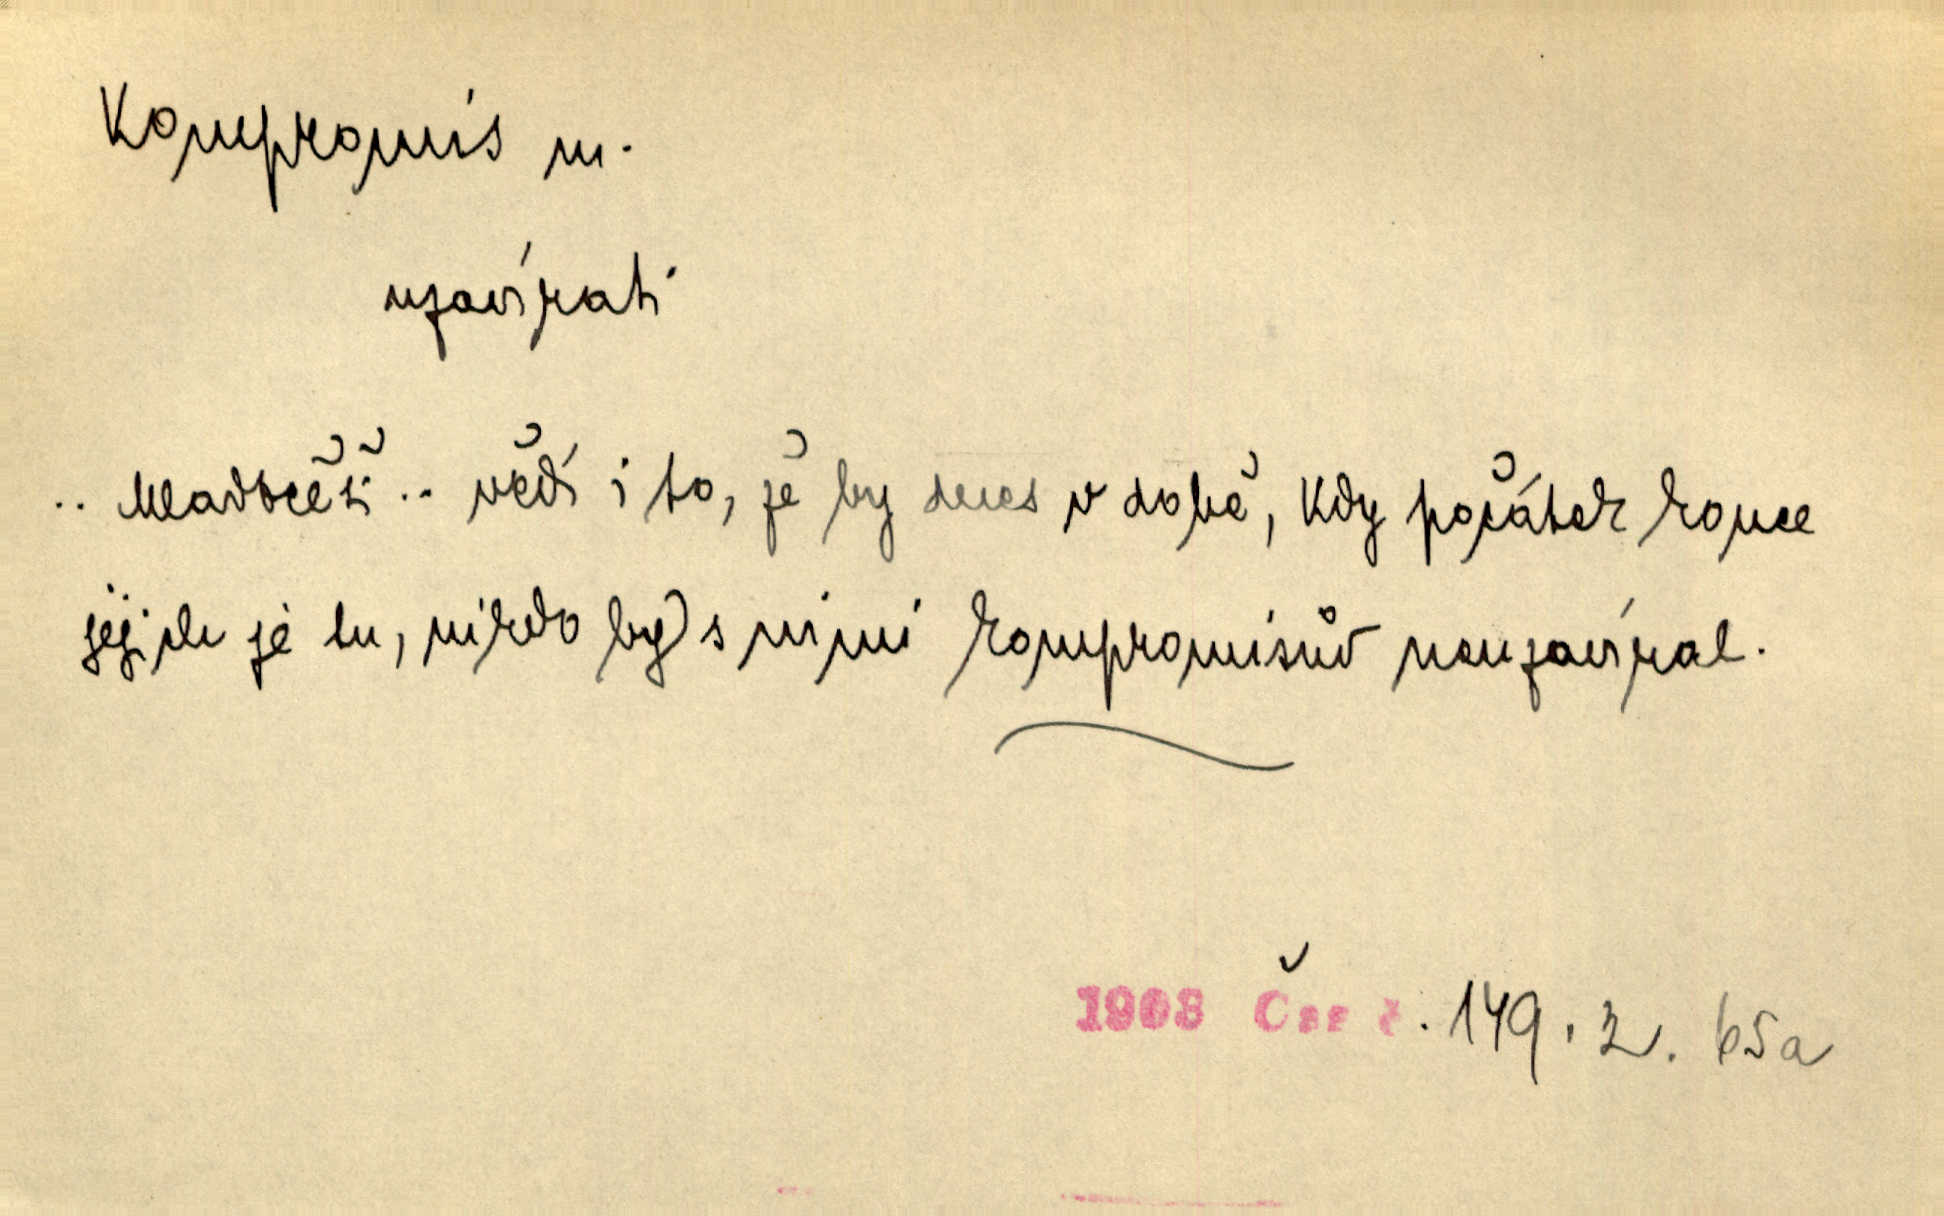 Kompromis m.
uzavírati
.. Mladočeši .. vědí i to, že by dnes v době, kdy počátek konce
jejich je tu, nikdo by s nimi kompromisův neuzavíral.
1908 Čas č. 149. 2. 65a